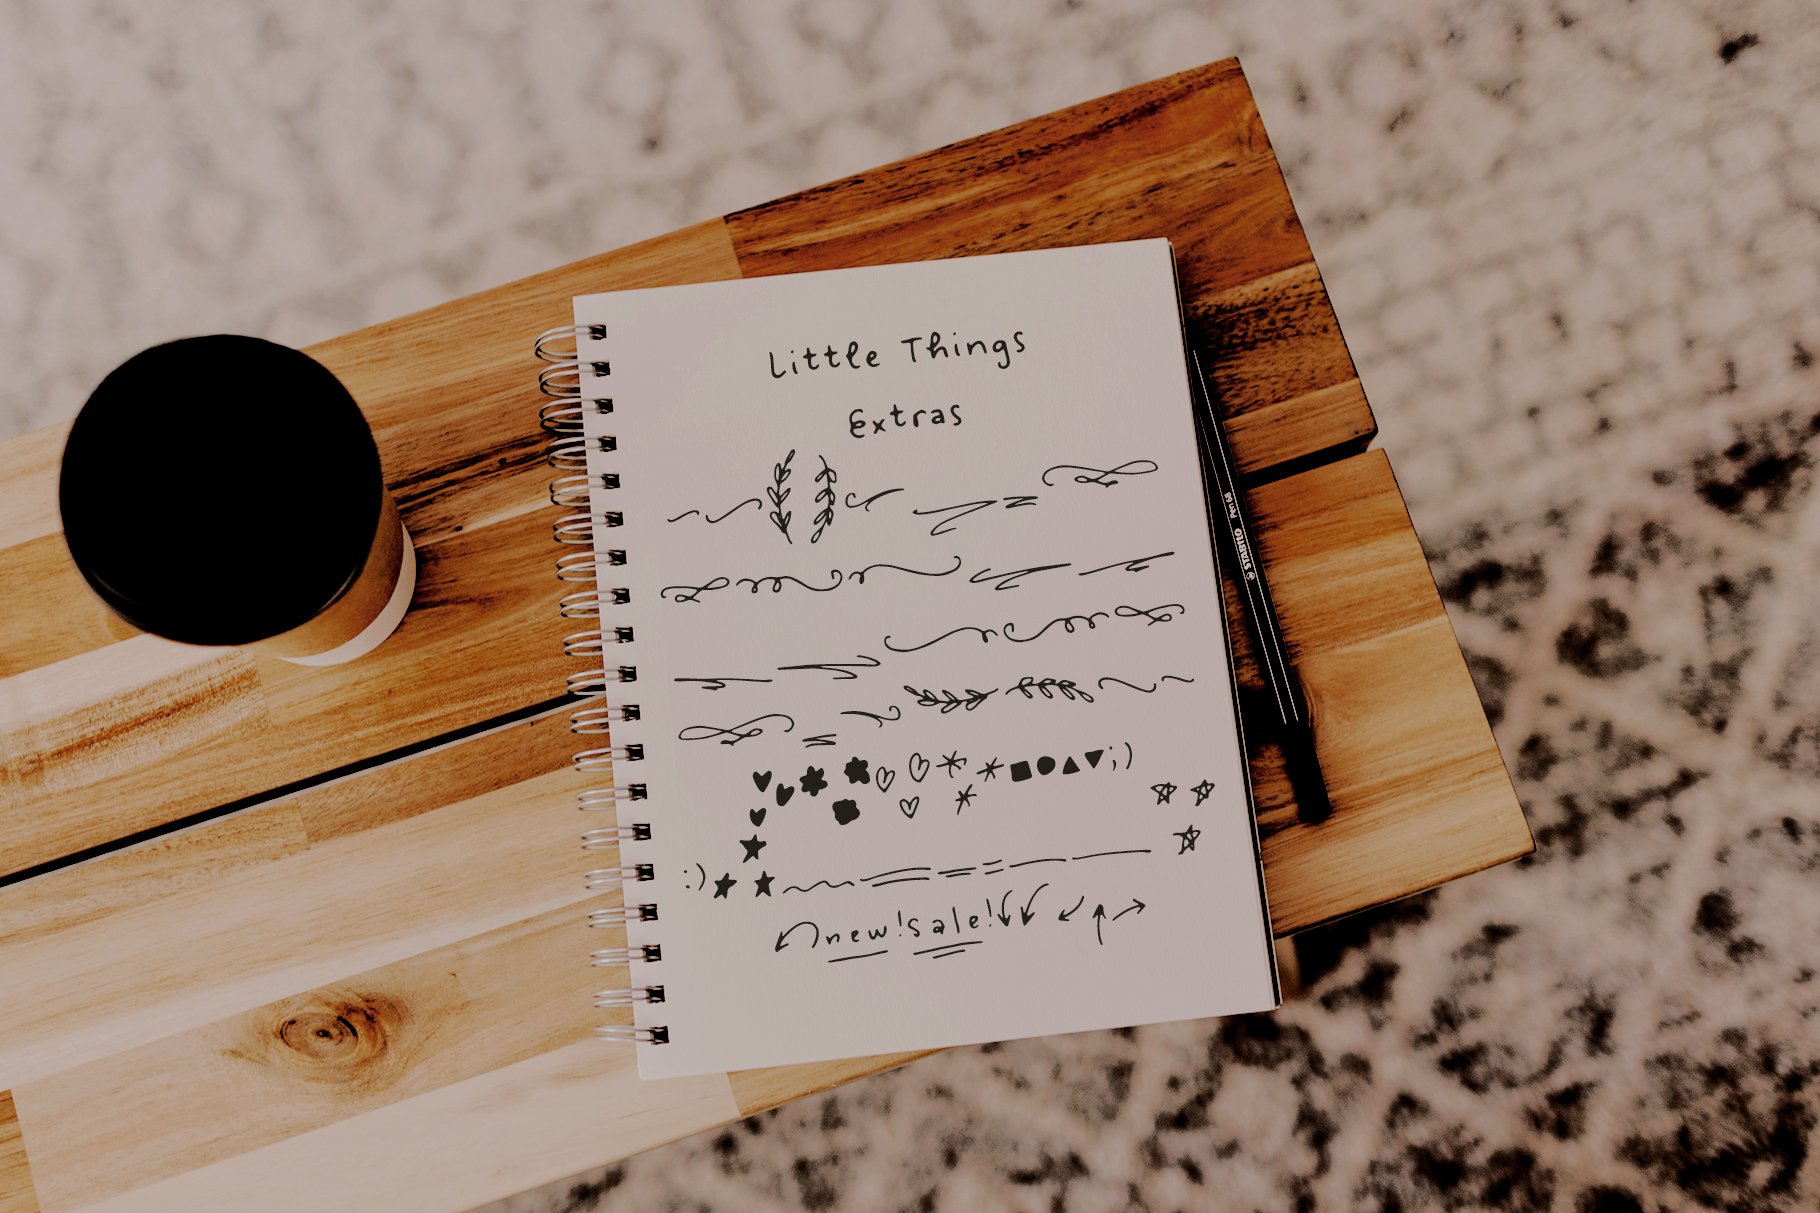 Little Things
Extras
;)
:)
new! sale!
STABILO Pen 68